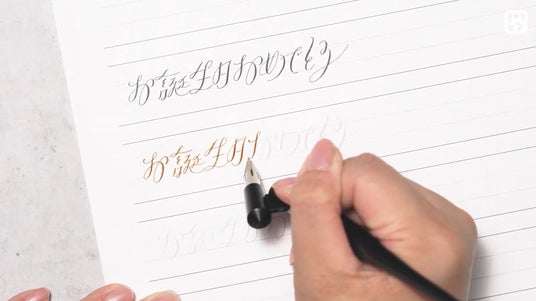 お誕生日おめでとう
お誕生日おめでとう
お誕生日